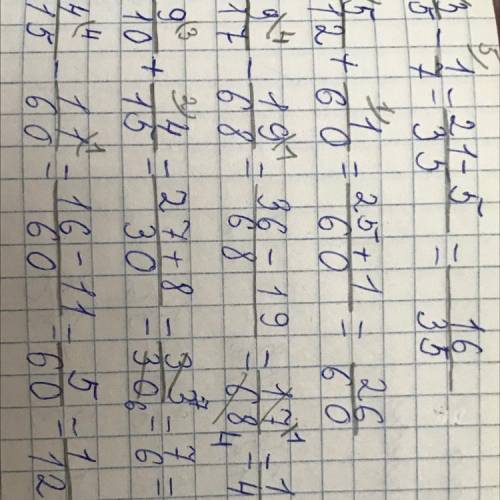 3/5 - 1/7 = 21-5/35 = 16/35
5/12 + 1/60 = 25+1/60 = 26/60
9/17 - 19/68 = 36-19/68 = 17/68 = 1/4
9/10 + 4/15 = 27+8/30 = 35/30 = 7/6 =
4/15 - 11/60 = 16-11/60 = 5/60 = 1/12